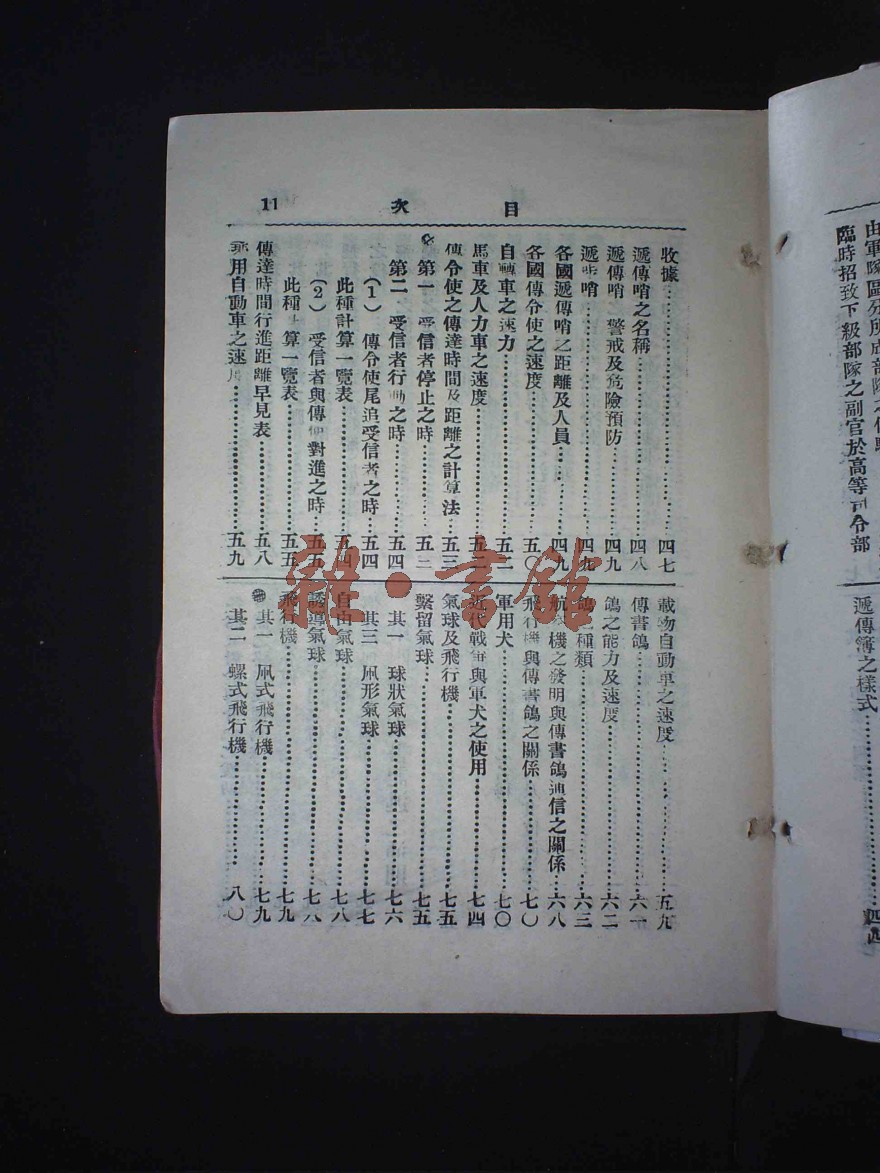 目次 11
收據 四七
遞傳哨之名稱 四八
遞傳哨 警戒及危險預防 四九
遞步哨 四九
各國遞傳哨之距離及人員 四九
各國傳令使之速度 五〇
自轉車之速力 五二
馬車及人力車之速度
傳令使之傳達時間及距離之計算法 五三
第一 受信者停止之時 五三
第二 受信者行動之時 五四
(1) 傳令使尾追受信者之時 五四
此種計算一覽表 五四
(2) 受信者與傳 對進之時 五五
此種計算一覽表 五五
傳達時間行進距離早見表 五八
乘用自動車之速度 五九
載物自動車之速度 五九
傳書鴿 六一
鴿之能力及速度 六二
鴿之種類 六三
航空機之發明與傳書鴿通信之關係 六八
飛行機與傳書鴿之關係 七〇
軍用犬 七〇
近代戰爭與軍犬之使用 七四
氣球及飛行機 七五
繫留氣球 七五
其一 球狀氣球 七六
其二 凧形氣球 七七
自由氣球 七八
誘導氣球 七八
飛行機 七九
其一 凧式飛行機 七九
其二 螺式飛行機 八〇
雜·書館
由軍隊區分所成部隊之
臨時招致下級部隊之副官於高等司令部
遞傳簿之樣式 四四